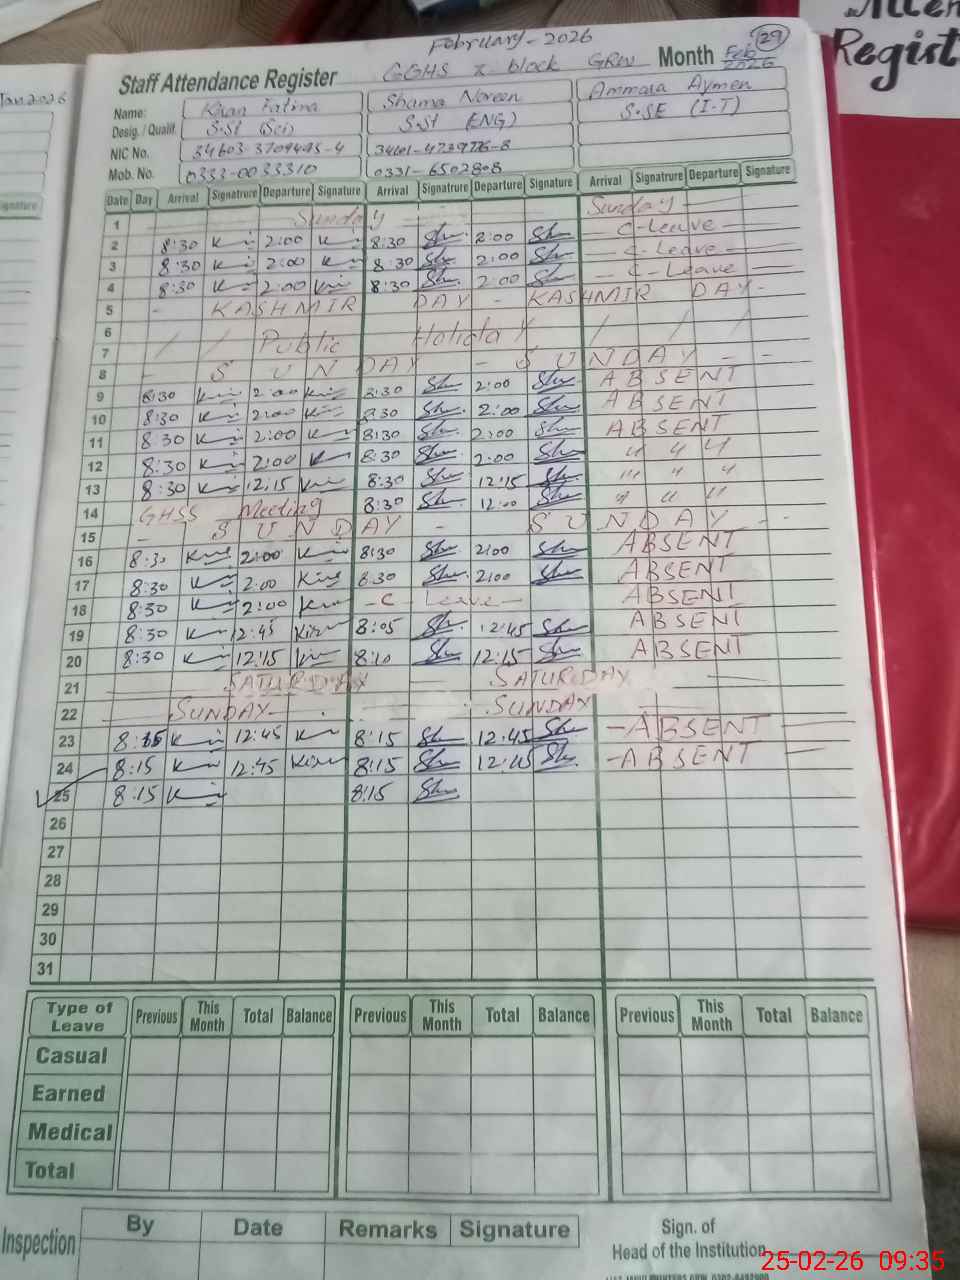 Atten
Regist
Jan 2026
ignature
February - 2026
29
Staff Attendance Register GGHS X-block GRW Month Feb 2026
Name: Kiran Fatima Shama Noreen Ammara Aymen
Desig. / Qualif. S.St (Sci) S.St (ENG) S.SE (I-T)
NIC No. 34603-3709495-4
Mob. No. 0333-0033310 0331-6502808
Date Day Arrival Signatrure Departure Signature Arrival Signatrure Departure Signature Arrival Signatrure Departure Signature
1 Sunday Sunday
2 8:30 2:00 8:30 2:00 C-Leave
3 8:30 2:00 8:30 2:00 C-Leave
4 8:30 2:00 8:30 2:00 C-Leave
5 - KASHMIR DAY - KASHMIR DAY -
6 / / Public Holiday / / /
7
8 - SUNDAY - SUNDAY - -
9 8:30 2:00 8:30 2:00 ABSENT
10 8:30 2:00 8:30 2:00 ABSENT
11 8:30 2:00 8:30 2:00 ABSENT
12 8:30 2:00 8:30 2:00 " " "
13 8:30 12:15 8:30 12:15 " " "
14 GHSS Meeting 8:30 12:00 " " "
15 - SUNDAY - SUNDAY - -
16 8:30 2:00 8:30 2:00 ABSENT
17 8:30 2:00 8:30 2:00 ABSENT
18 8:30 2:00 - C - Leave - ABSENT
19 8:30 12:45 8:05 12:45 ABSENT
20 8:30 12:15 8:10 12:15 ABSENT
21 SATURDAY SATURDAY
22 SUNDAY SUNDAY
23 8:15 12:45 8:15 12:45 - ABSENT
24 8:15 12:45 8:15 12:45 - ABSENT
25 8:15 8:15
26
27
28
29
30
31
Type of Leave Previous This Month Total Balance Previous This Month Total Balance Previous This Month Total Balance
Casual
Earned
Medical
Total
Inspection By Date Remarks Signature
Sign. of
Head of the Institution
25-02-26 09:35